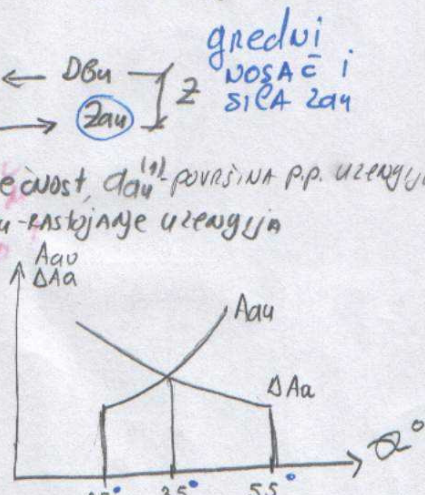 gredni
NOSAČ i
SILA Zau
← DBu
Z
Zau
ečnost, aau⁽¹⁾-POVRŠINA P.P. UZENGIJ
u-RASTOJANJE UZENGIJA
Aau
ΔAa
Aau
ΔAa
35° 55°